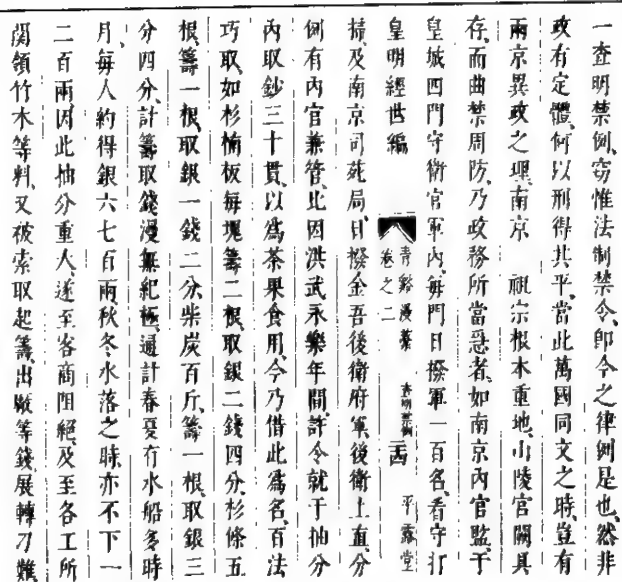 一查明禁例竊惟法制禁令卽今之律例是也然非
政有定體何以刑得其平當此萬國同文之時豈有
兩京異政之理南京 祖宗根本重地山陵宮闕具
存而曲禁周防乃政務所當急者如南京內官監于
皇城四門守衛官軍內每門日撥軍一百名看守打
皇明經世編
青谿漫藁
卷之二
查明禁例
平露堂
掃及南京司苑局日撥金吾後衛府軍後衛上直分
例有內官兼管比因洪武永樂年間許令就于抽分
內取鈔三十貫以爲茶果食用今乃借此爲名百法
巧取如杉楠板每塊籌二根取銀二錢四分杉條五
根籌一根取銀一錢二分柴炭百斤籌一根取銀三
分四分計籌取錢漫無紀極通計春夏有水船多時
月每人約得銀六七百兩秋冬水落之時亦不下一
二百兩因此抽分重人遂至客商阻絕及至各工所
關領竹木等料又被索取起籌出廠等錢展轉刁難